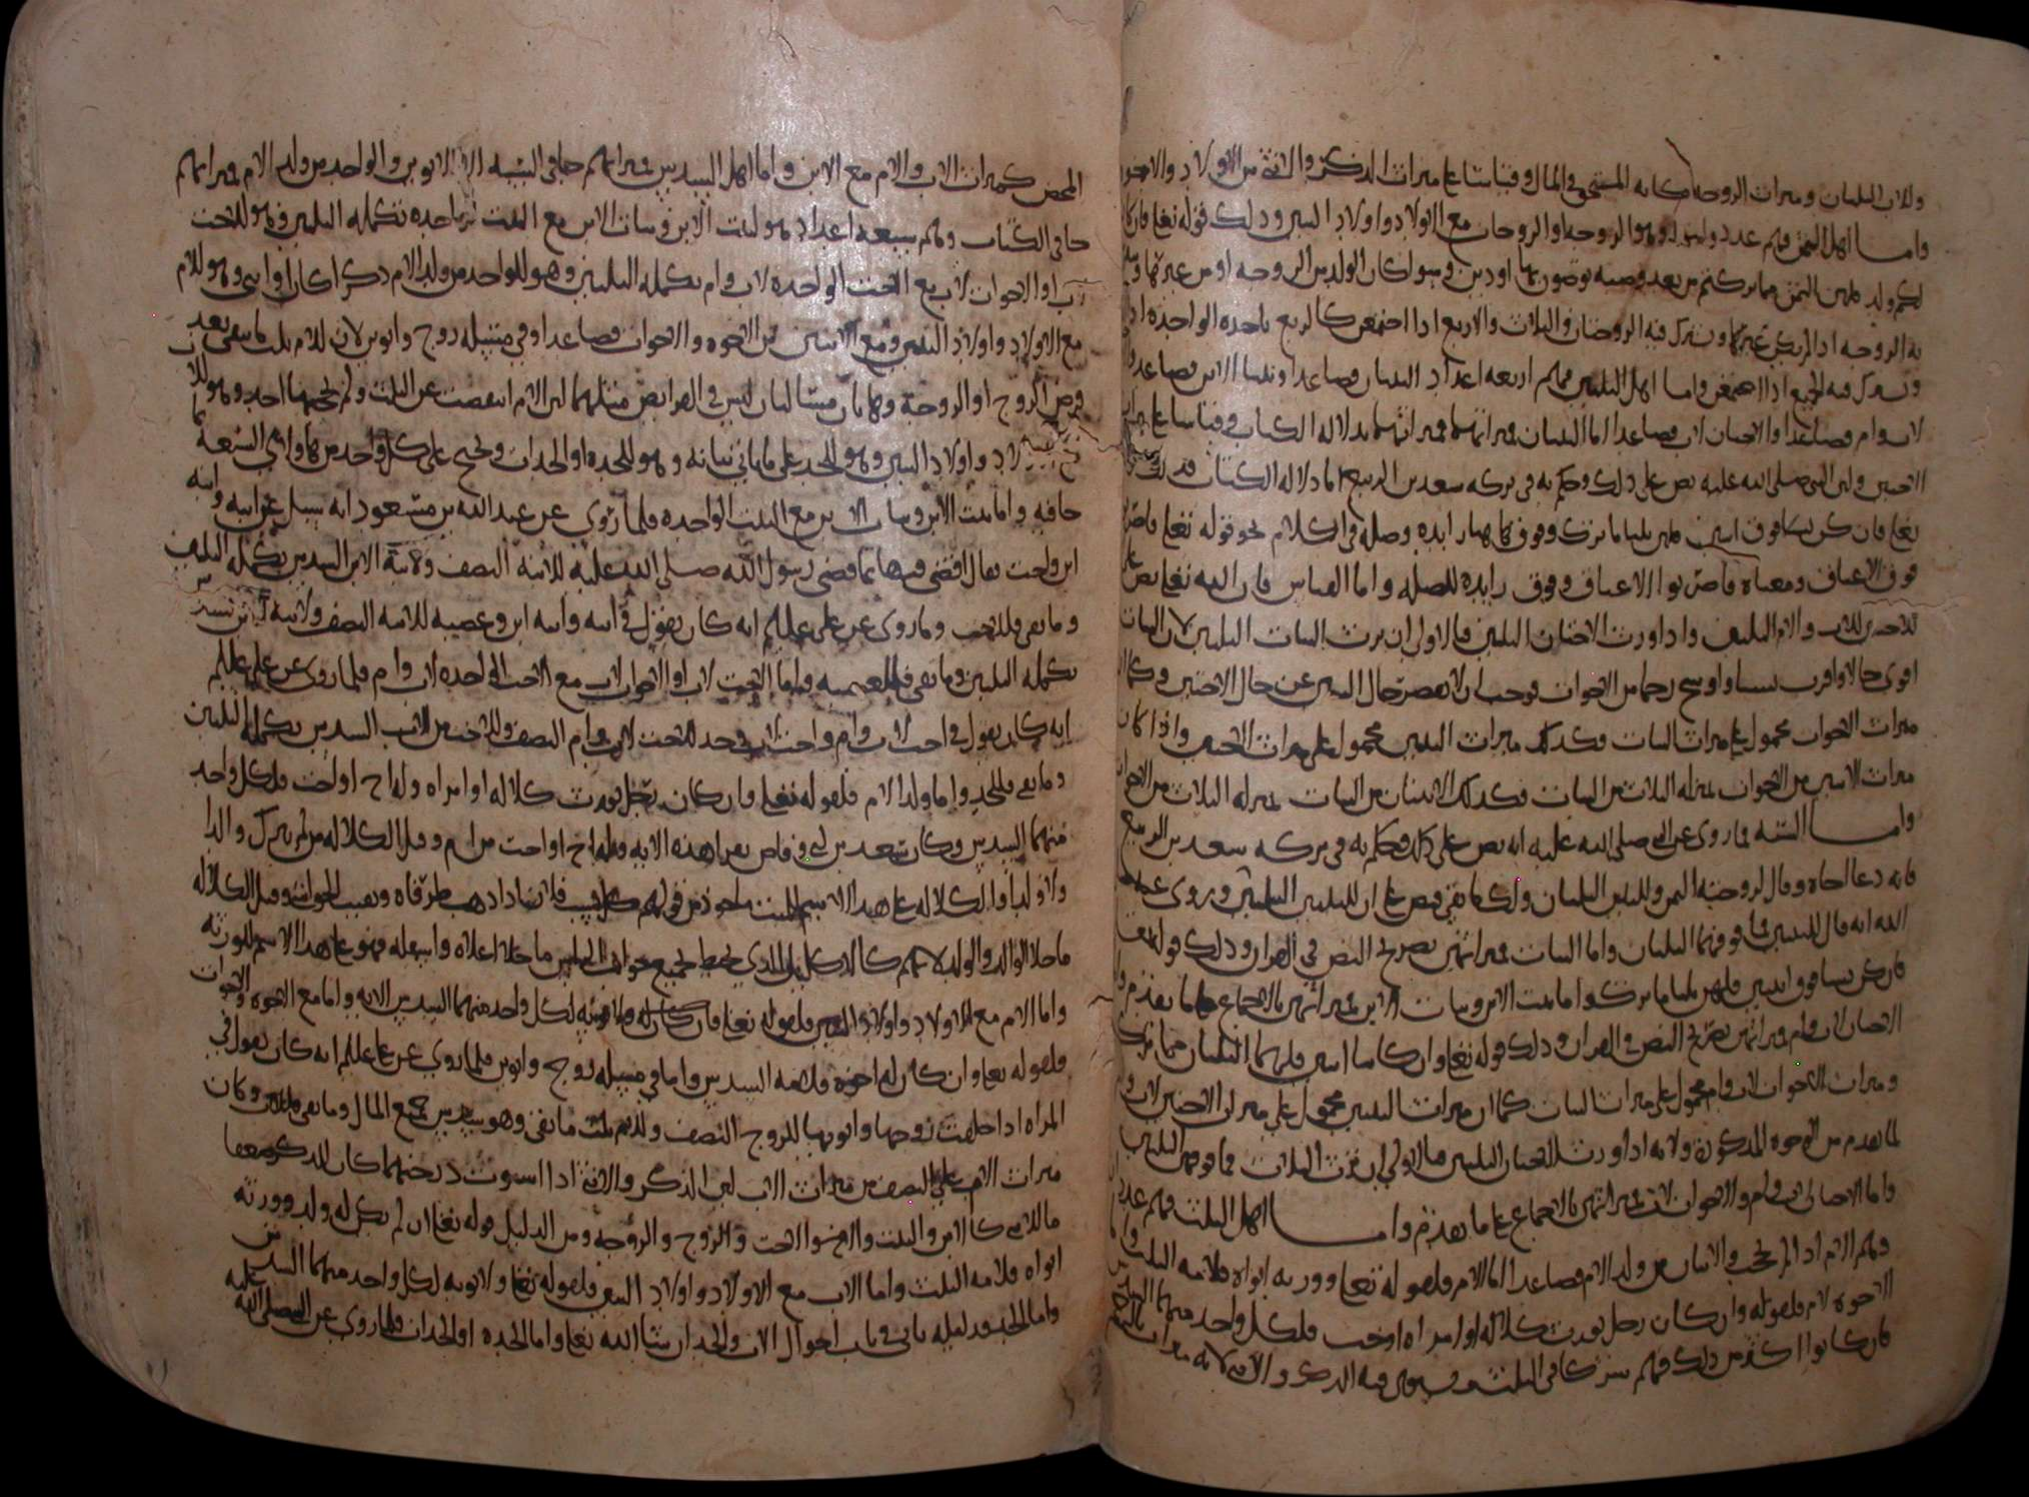 وللاب الثلثان وميراث الزوجة كانه المستحق في المال وقياسا على ميراث الذكر والانثى من الاولاد والاخوة
واما اهل الثمن فهم عدد واحد وهو الزوجة او الزوجات مع الاولاد واولاد البنين وذلك قوله تعالى فان كان
لكم ولد فلهن الثمن مما تركتم من بعد وصية توصون بها او دين وسوا كان الولد من الزوجة او من غيرها
الزوجة اذا لم يكن غيرها وتشترك فيه الزوجتان والثلاث والاربع اذا اجتمعن كالربع تاخذه الواحدة
وتشترك فيه الجميع اذا اجتمعن واما اهل الثلثين فهم اربعة اعداد البنتان فصاعدا وبنتا الابن فصاعدا
لاب وام فصاعدا والاختان لاب فصاعدا اما البنتان فميراثهما بدلالة الكتاب وقياسا على ميراث
الاختين ولان النبي صلى الله عليه نص على ذلك وحكم به في تركة سعد بن الربيع اما دلالة الكتاب فقوله
تعالى فان كن نسا فوق اثنتين فلهن ثلثا ما ترك وفوق هاهنا زايدة وصلة في الكلام نحو قوله تعالى فاضربوا
فوق الاعناق ومعناه فاضربوا الاعناق وفوق زايدة للصلة واما القياس فان الله تعالى نص على
للاختين للاب والام الثلثين واذا ورثت الاختان الثلثين فالاولى ان يرث البنات الثلثين لان البنات
اقوى حالا واقرب نسبا واوشج رحما من الاخوات فوجب ان لا يقصر حال البنتين عن حال الاختين وكما ان
ميراث الاخوات محمول على ميراث البنات فكذلك ميراث البنتين محمول على ميراث الاختين واذا كان
ميراث الاثنتين من الاخوات بمنزلة الثلاث من البنات فكذلك الاثنتان من البنات بمنزلة الثلاث من الاخوات
واما السنة فما روي عن النبي صلى الله عليه انه نص على ذلك وحكم به في تركة سعد بن الربيع
فانه دعا اخاه وقال لزوجته الثمن وللبنتين الثلثان ولك ما بقي فنص على ان للبنتين الثلثين وروي عنه صلى
الله انه قال للبنتين فما فوقهما الثلثان واما البنات فميراثهن بصريح النص في القران وذلك قوله تعالى
فان كن نسا فوق اثنتين فلهن ثلثا ما ترك واما بنت الابن وبنات الابن فميراثهن بالاجماع على ما تقدم واما
الاختان لاب وام فميراثهن بصريح النص في القران وذلك قوله تعالى وان كانتا اثنتين فلهما الثلثان مما ترك
وميراث الاخوات لاب وام محمول على ميراث البنات كما ان ميراث البنتين محمول على ميراث الاختين لاب وام
لما تقدم من الوجوه المذكورة ولانه اذا ورث الاختان الثلثين فالاولى ان ترث الثلاث فما فوقهن الثلثين
واما الاختان لاب وام والاخوات لاب فميراثهن بالاجماع على ما تقدم واما اهل الثلث فهم عددان
وهم الام اذا لم تحجب والاثنان من ولد الام فصاعدا اما الام فلقوله تعالى وورثه ابواه فلامه الثلث واما
الاخوة لام فلقوله وان كان رجل يورث كلالة او امراة وله اخ او اخت فلكل واحد منهما السدس
فان كانوا اكثر من ذلك فهم شركا في الثلث ويستوي فيه الذكر والانثى لانه ميراث بالرحم
المحض كميراث الاب والام مع الابن واما اهل السدس فميراثهم جا في السنة الا الابوين والواحد من ولد الام فميراثهم
جا في الكتاب وهم سبعة اعداد هو لبنت الابن وبنات الابن مع البنت تاخذه تكملة الثلثين وهو للاخت
لاب او الاخوات لاب مع الاخت الواحدة لاب وام تكملة الثلثين وهو للواحد من ولد الام ذكرا كان او انثى وهو للام
مع الاولاد واولاد البنين ومع الاثنين من الاخوة والاخوات فصاعدا وفي مسئلة زوج وابوين لان للام ثلث ما يبقى بعد
فرض الزوج او الزوجة وهاتان مسئلتان ليس في الفرايض مثلهما لان الام انتقصت عن الثلث ولم يحجبها احد وهو للاب
مع الاولاد واولاد البنين وهو للجد على ما ياتي بيانه وهو للجدة او الجدات ونحتج على كل واحد من هاولاي السبعة بما
جا فيه واما بنت الابن وبنات الابن مع البنت الواحدة فلما روي عن عبد الله بن مسعود انه سيل عن ابنة وابنة
ابن واخت فقال اقضي فيها بما قضى رسول الله صلى الله عليه للابنة النصف ولابنة الابن السدس تكملة الثلثين
وما بقي فللاخت وما روي عن علي عليلم انه كان يقول في ابنة وابنة ابن وعصبة للابنة النصف ولابنة الابن السدس
تكملة الثلثين وما بقي فللعصبة واما الاخت لاب او الاخوات لاب مع الاخت الواحدة لاب وام فلما روي عن علي عليلم
انه كان يقول في اخت لاب وام واخت لاب وجد للاخت لاب وام النصف وللاخت من الاب السدس تكملة الثلثين
وما بقي فللجد واما ولد الام فلقوله تعالى وان كان رجل يورث كلالة او امراة وله اخ او اخت فلكل واحد
منهما السدس وكان سعد بن ابي وقاص يقرا هذه الاية وله اخ او اخت من ام وقيل الكلالة من لم يترك والدا
ولا ولدا والكلالة على هذا اسم للميت ماخوذ من قولهم كل فلان اذا ذهب طرفاه وتعبت الجوانب وقيل الكلالة
ما خلا الوالد والولد لانهم كالاكليل الذي يحيط بجميع جوانب الراس ما خلا اعلاه واسفله فهو على هذا الاسم للورثة
واما الام مع الاولاد واولاد البنين فلقوله تعالى ولابويه لكل واحد منهما السدس الاية واما مع الاخوة والاخوات
فلقوله تعالى وان كان له اخوة فلامه السدس واما في مسئلة زوج وابوين فلما روي عن علي عليلم انه كان يقول في
المراة اذا خلفت زوجها وابويها للزوج النصف وللام ثلث ما بقي وهو سدس جميع المال وما بقي فللاب وكان
ميراث الام على النصف من ميراث الاب لان الذكر والانثى اذا استوت درجتهما كان للذكر ضعفا
ما للانثى كالابن والبنت والاخ والاخت والزوج والزوجة ومن الدليل قوله تعالى ان لم يكن له ولد وورثه
ابواه فلامه الثلث واما الاب مع الاولاد واولاد البنين فلقوله تعالى ولابويه لكل واحد منهما السدس
واما الجد فدليله ياتي في باب احوال الاب والجد ان شا الله تعالى واما الجدة او الجدات فلما روي عن النبي صلى الله عليه